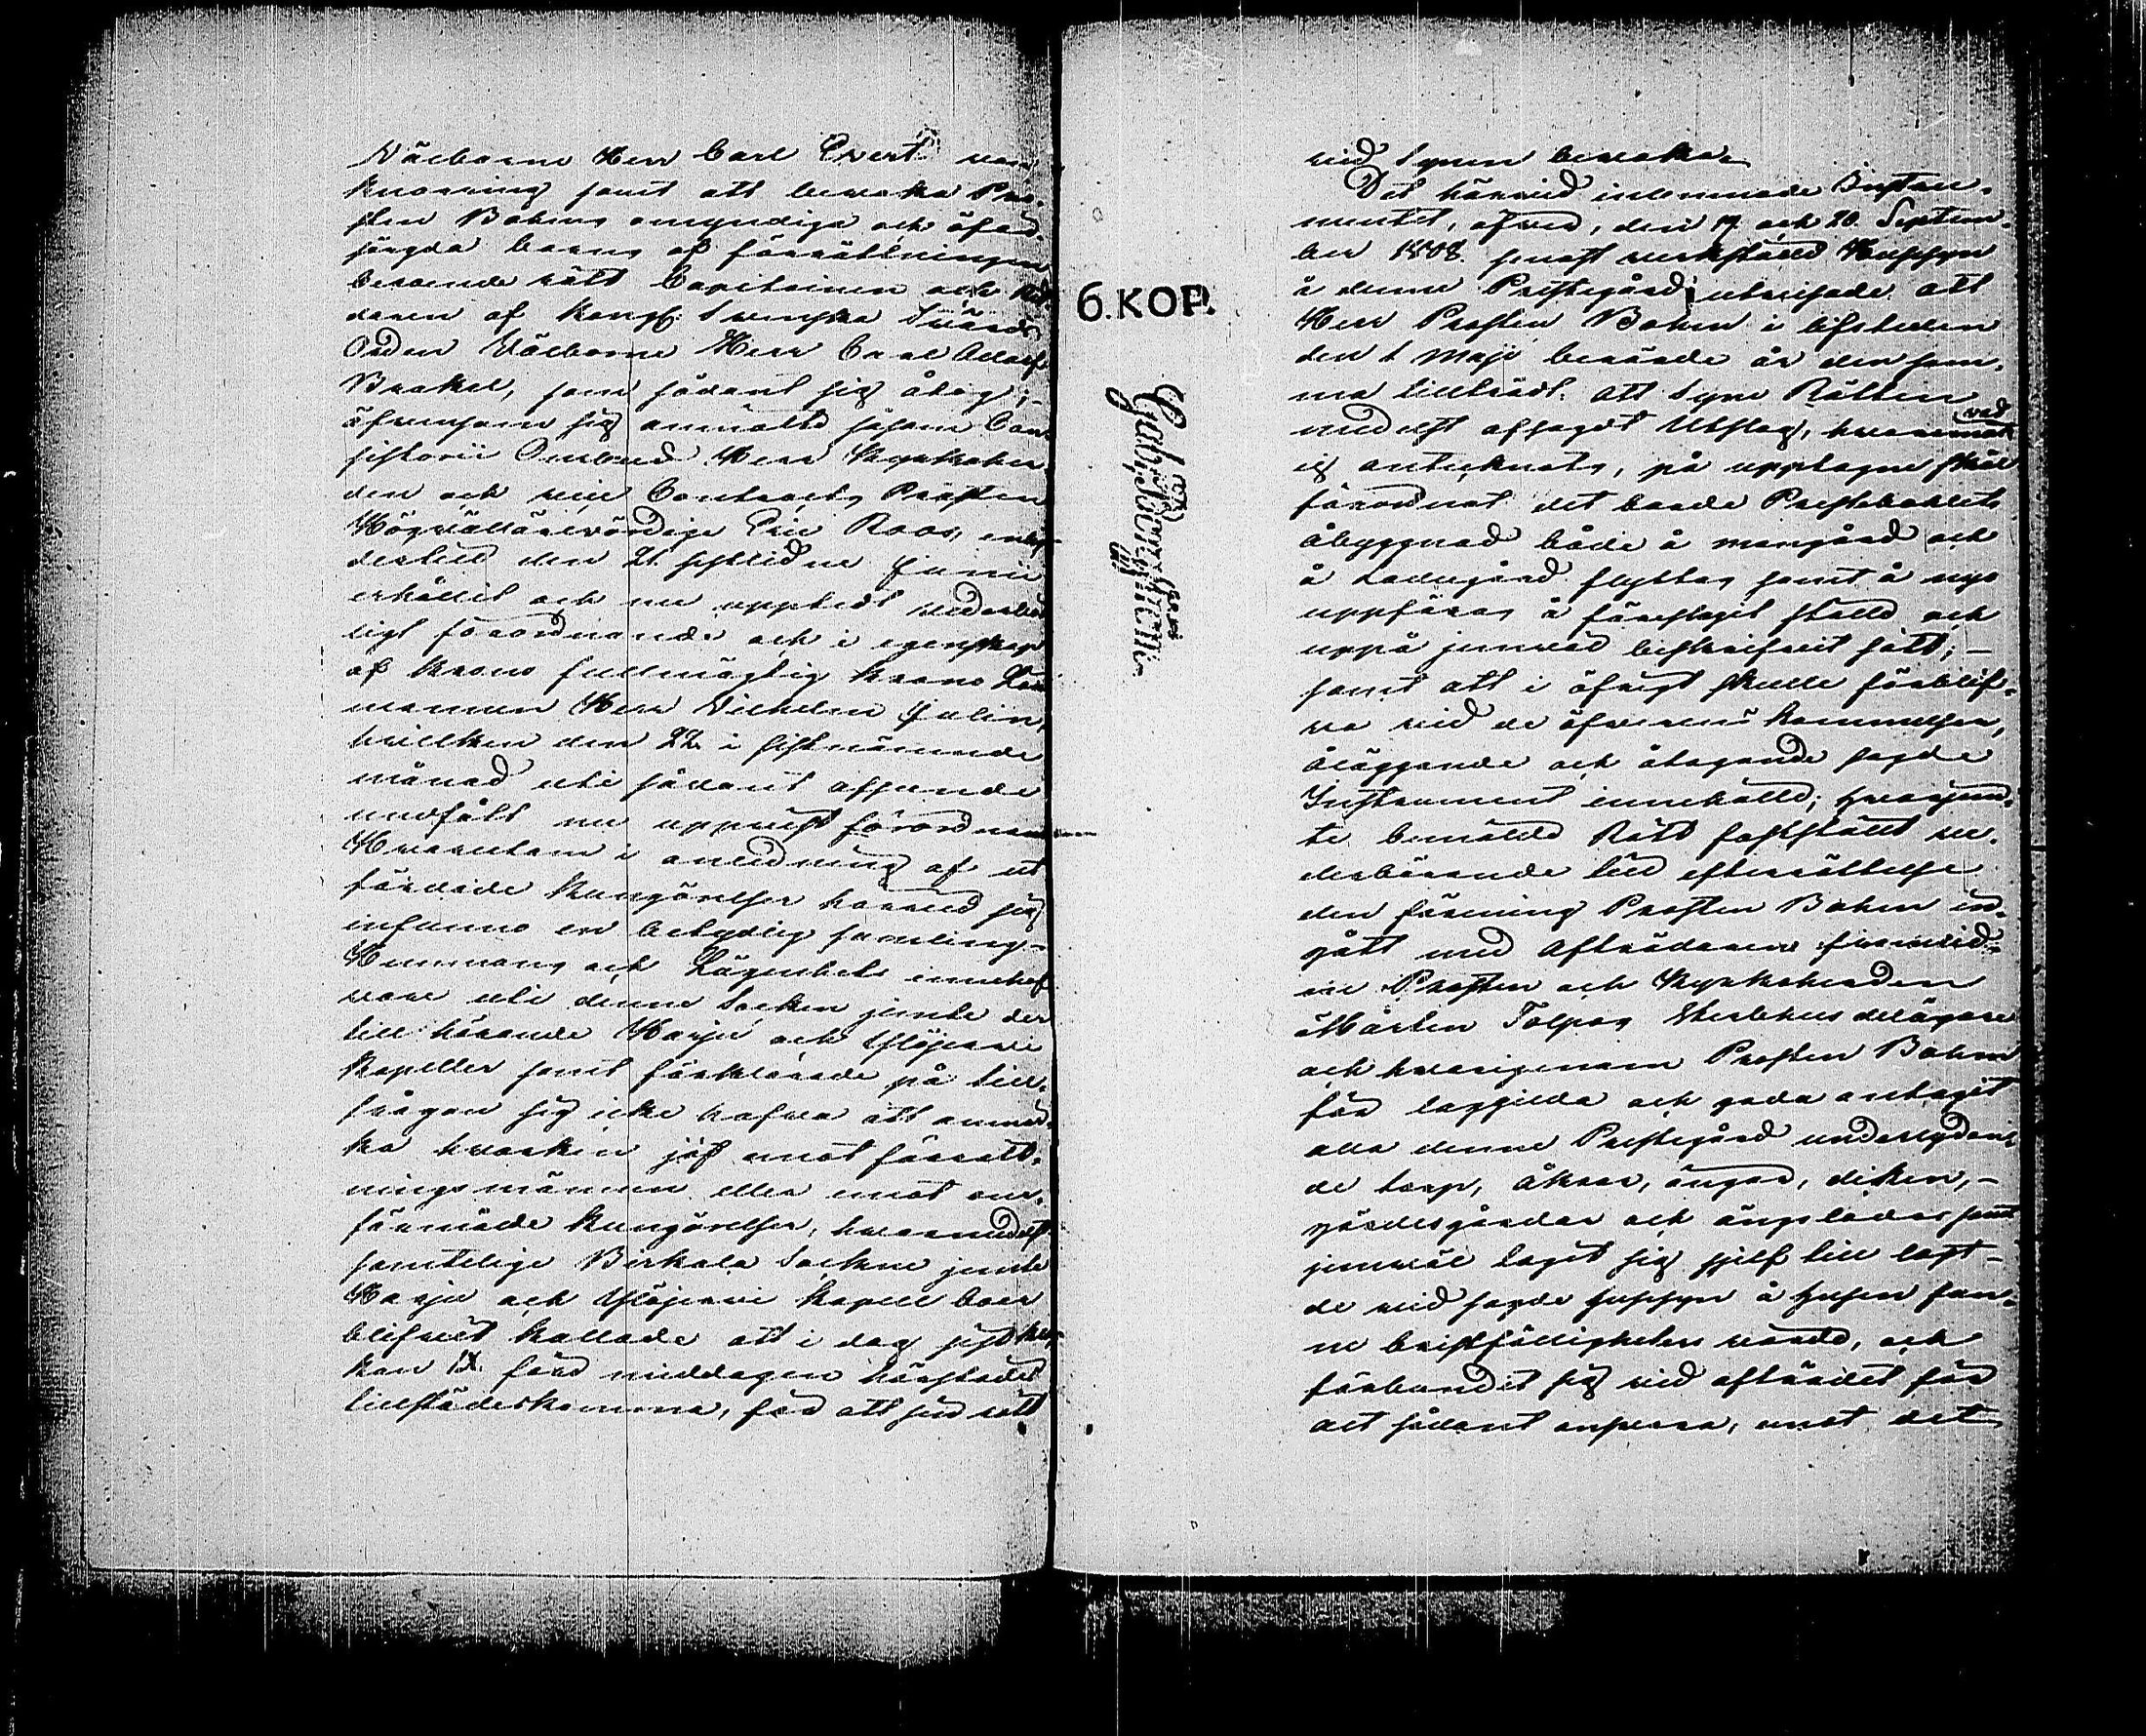 Välborne Herr Carl Evert von
Knorring samt att bevaka Pro-
sten Bohms omyndiga och ofvan-
sagda barns af förrättningen
beroende rätt Capitainen och Rid-
daren af Kongl. Svenska Svärds
Orden Välborne Herr Carl Adolf
Brakel, som sådant sig åtog;-
äfvensom sig anmälte såsom Con-
sistorii Ombud Herr Kyrkoher-
den och vice Contracts Prosten
Högvällärevördige Eric Roos,
dertill den 21 sistlidne Junii
erhållit och nu uppteedt vederbör-
ligt förordnande och i egenskap
af Krono fullmägtig Krono Läns
mannen Herr Vilhelm Julin,
hvilken den 22 i sistnämnde
månad uti sådant afseende
undfått nu uppvist förordnan
Hvarutom i anledning af ut
färdade Kungörelser härvid sig
infunno en betydlig samling-
Hemmans och Lägenhets innehaf
vare uti denne Socken jemte der
till hörande Harju och Ylöjervi
kapeller samt förklarade på till-
frågan sig icke hafva att anmär-
ka hvarken jäf emot förrätt-
ningsmännen eller emot om-
förmälde Kungörelser, hvarmedelst
samtelige Birkala Sockne jemte
Harju och Ylöjervi Kapell boer
blifvit kallade att i dag sist kloc-
kan IX förd middagen härstädes
tillstädeskomma, för att sin rätt
vid Synen bevaka.
Det härvid inlemnade Instru-
mentet, öfver, den 19 och 20 Septem-
ber 1808 senast verkställd Hussyn
å denne Prestegård utvisade att
Herr Prosten Bohm i lifstiden
den 1 Maji berörde år den sam-
ma tillträdt. Att Syne Rätten
medelst afsagdt Utslag, hvaremot vad
ej antecknats, på upptagne skäl
förordnat det borde Prestebohlets
åbyggnad både å mangård och
å Ladugård flyttas samt å nyo
uppföras å föreslaget ställe och
uppå jemväl beskrifvit sätt;-
samt att i öfrigt skulle förblif-
va vid de öfverens kommelser,
åläggande och åtagande sagde
Instrument innehålld; hvarjem-
te bemälde Rätt fastställt ve-
derbörande till efterrättelse
den förening Prosten Bohm in-
gått med Afträdaren framled-
ne Prosten och Kyrkoherden
Mårten Tolpos Sterbhus delägare
och hvarigenom Prosten Bohm
för laggilda och goda antagit
alla denne Prestegård underlydan-
de torp, åkrar, ängar, diken,-
gärdesgårdar och ängslador samt
jemväl tagit sig sjelf till last-
de vid sagde hussyn å husen fun-
ne bristfälligheters värde, och
förbundit sig vid afträdet för
alt sådant ansvara, emot det
6. KOP.